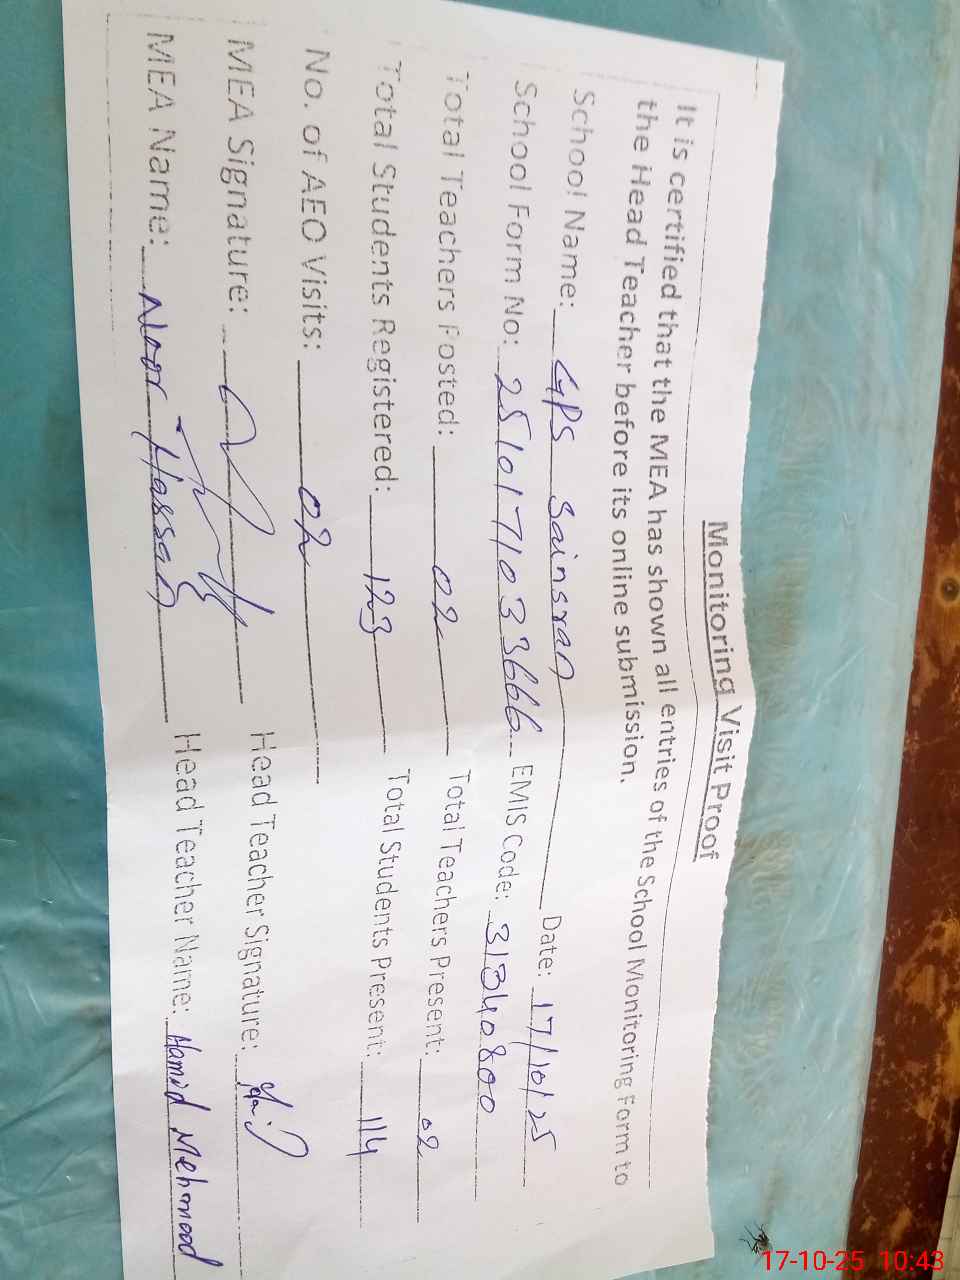 Monitoring Visit Proof
It is certified that the MEA has shown all entries of the School Monitoring Form to
the Head Teacher before its online submission.
School Name: GPS Sainsran Date: 17/10/25
School Form No: 2510171033666 EMIS Code: 31340800
Total Teachers Posted: 02 Total Teachers Present: 02
Total Students Registered: 123 Total Students Present: 114
No. of AEO Visits: 02
MEA Signature: Head Teacher Signature:
MEA Name: Noor Hassan Head Teacher Name: Hamid Mehmood
17-10-25 10:43